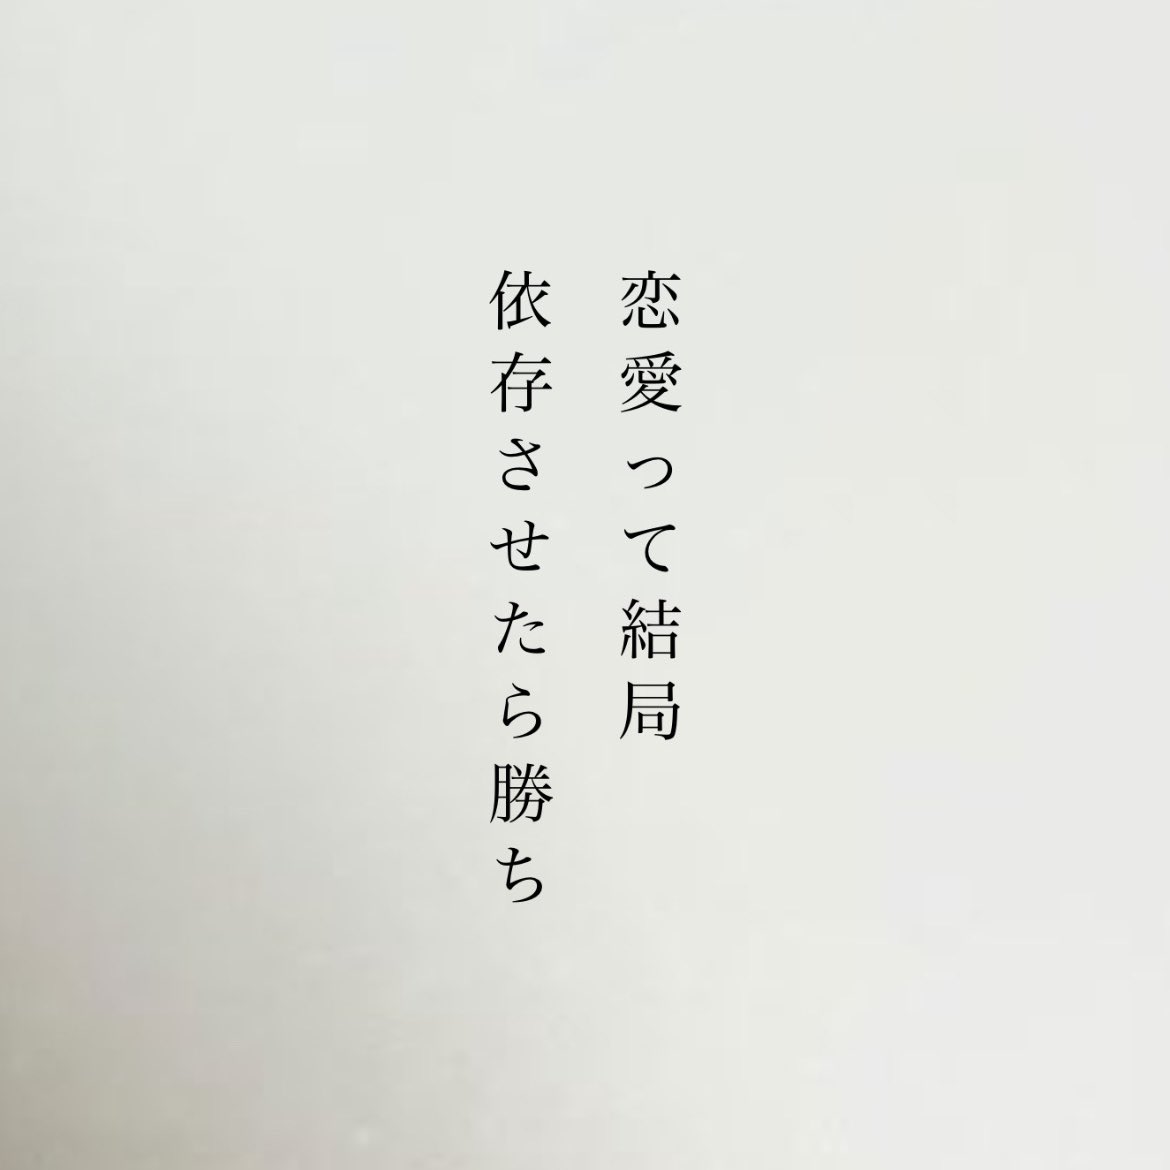 恋愛って結局
依存させたら勝ち